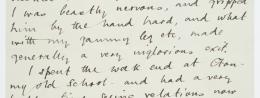 I was beastly nervous, and gripped
him by the hand hard, and what
with my game leg etc, made
generally a very inglorious exit.
I spent the week end at Eton -
my old School - and had a very
seeing relations now